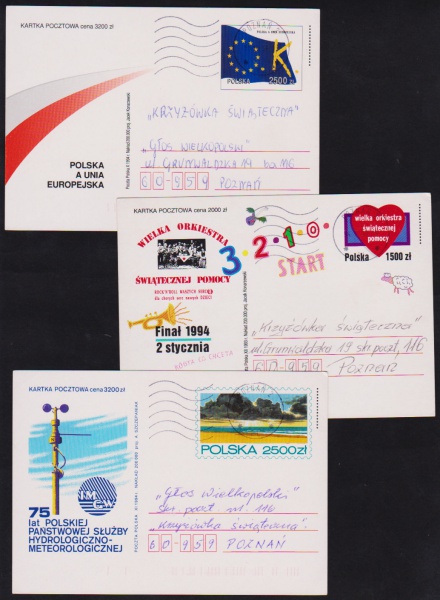 KARTKA POCZTOWA cena 3200 zł
POLSKA A UNIA EUROPEJSKA
K.
POLSKA 2500 zł
POZNAŃ
"KRZYŻÓWKA ŚWIĄTECZNA"
"GŁOS WIELKOPOLSKI"
ul GRUNWALDZKA 19
60-959 POZNAŃ
POLSKA
A UNIA
EUROPEJSKA
KARTKA POCZTOWA cena 2000 zł
WIELKA ORKIESTRA
ŚWIĄTECZNEJ POMOCY
Finał 1994
2 stycznia
3.2.1.0.
START
wielka orkiestra
świątecznej
pomocy
Polska 1500 zł
"Krzyżówka świąteczna"
ul. Grunwaldzka 19 skr. poczt. 116
60-959
Poznań
KARTKA POCZTOWA cena 3200 zł
POLSKA 2500 zł
IMGW
75
lat POLSKIEJ
PAŃSTWOWEJ SŁUŻBY
HYDROLOGICZNO-
METEOROLOGICZNEJ
"Głos Wielkopolski"
skr. poczt nr. 116
"Krzyżówka świąteczna"
60-959 POZNAŃ